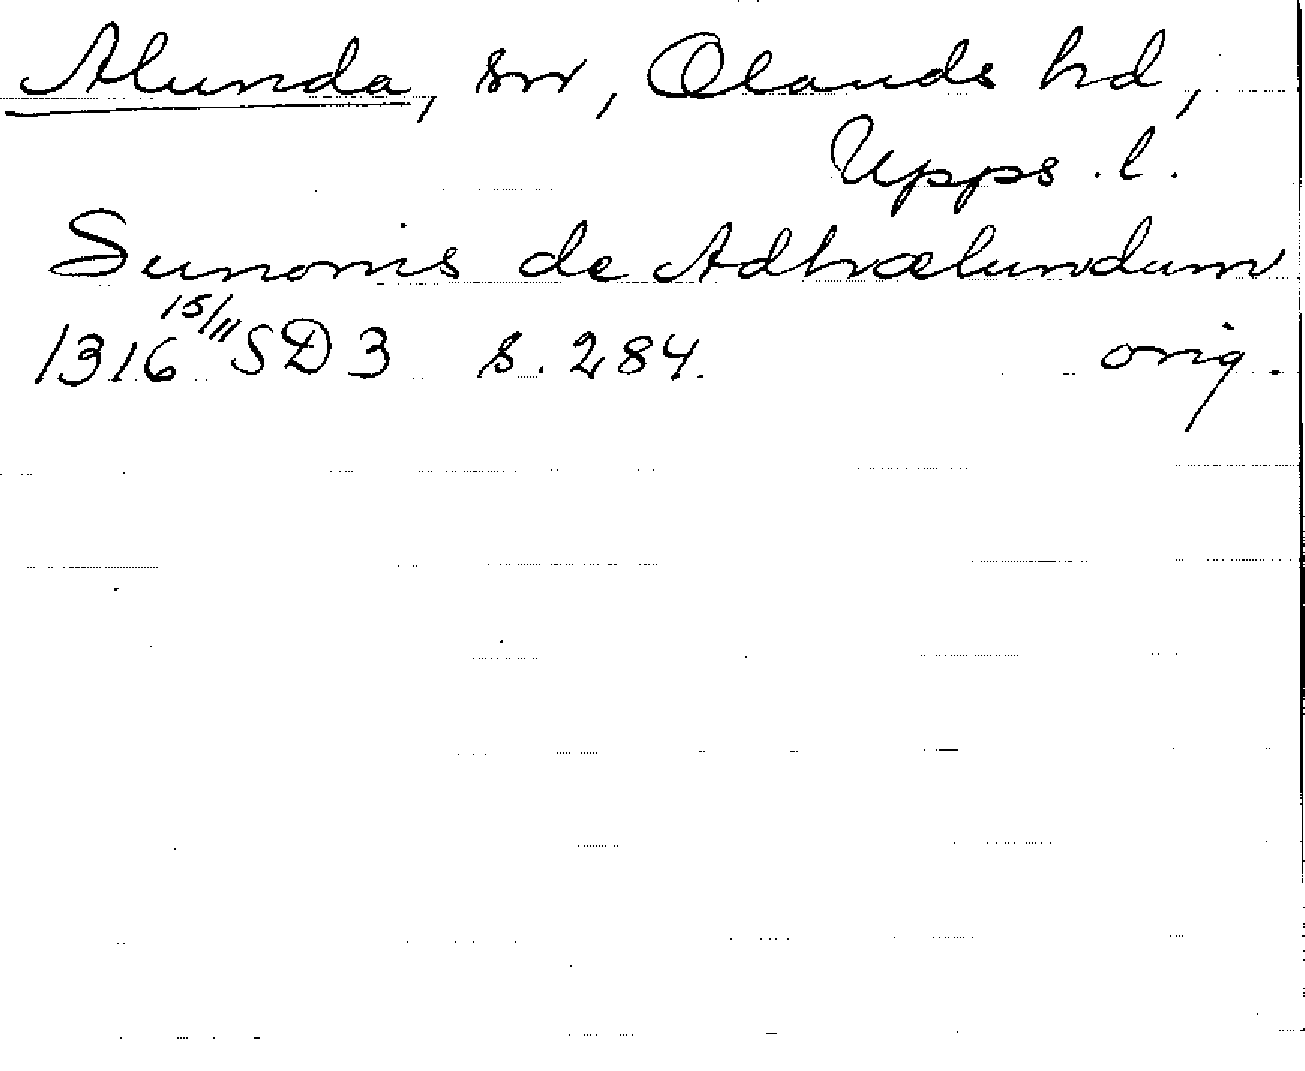 Alunda, sn, Olands hd,
Upps. l.
Sunonis de Adhrælundum
1316 15/11 SD 3 s. 284. orig.